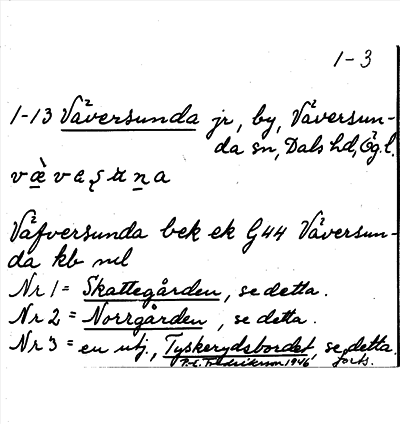 1-3
1-13 Väversunda jr, by, Väversun-
da sn, Dals hd, Ög.l.
Väfversunda bek ek G44 Väversun-
da kb ml
Nr 1 = Skattegården, se detta.
Nr 2 = Norrgården, se detta.
Nr 3 = en utj., Tyskerydsbordet, se detta.
Fredriksson 1946 forts.